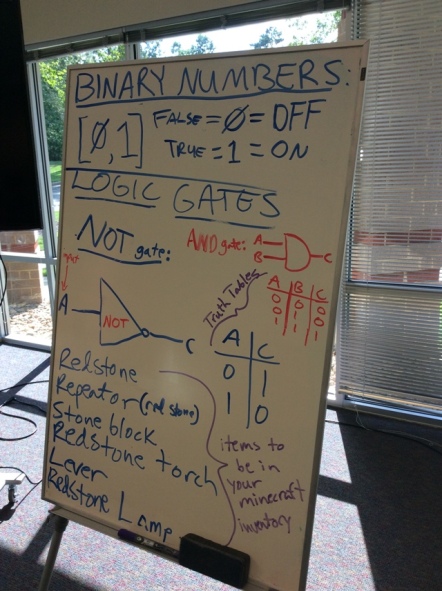 BINARY NUMBERS:
[Ø,1] FALSE = Ø = OFF
TRUE = 1 = ON
LOGIC GATES
NOT gate:
A NOT C
AND gate: A
B
C
Truth Tables
A C
0 1
1 0
A B C
0 0 0
1 0 0
1 1 1
Redstone
Repeator (redstone)
Stone block
Redstone torch
Lever
Redstone Lamp
items to
be in
your
minecraft
inventory.